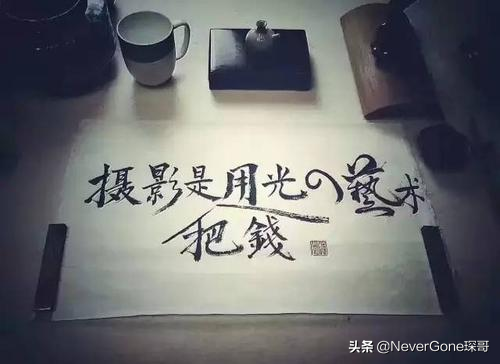 摄影是用光の藝术
把錢
头条 @NeverGone琛哥